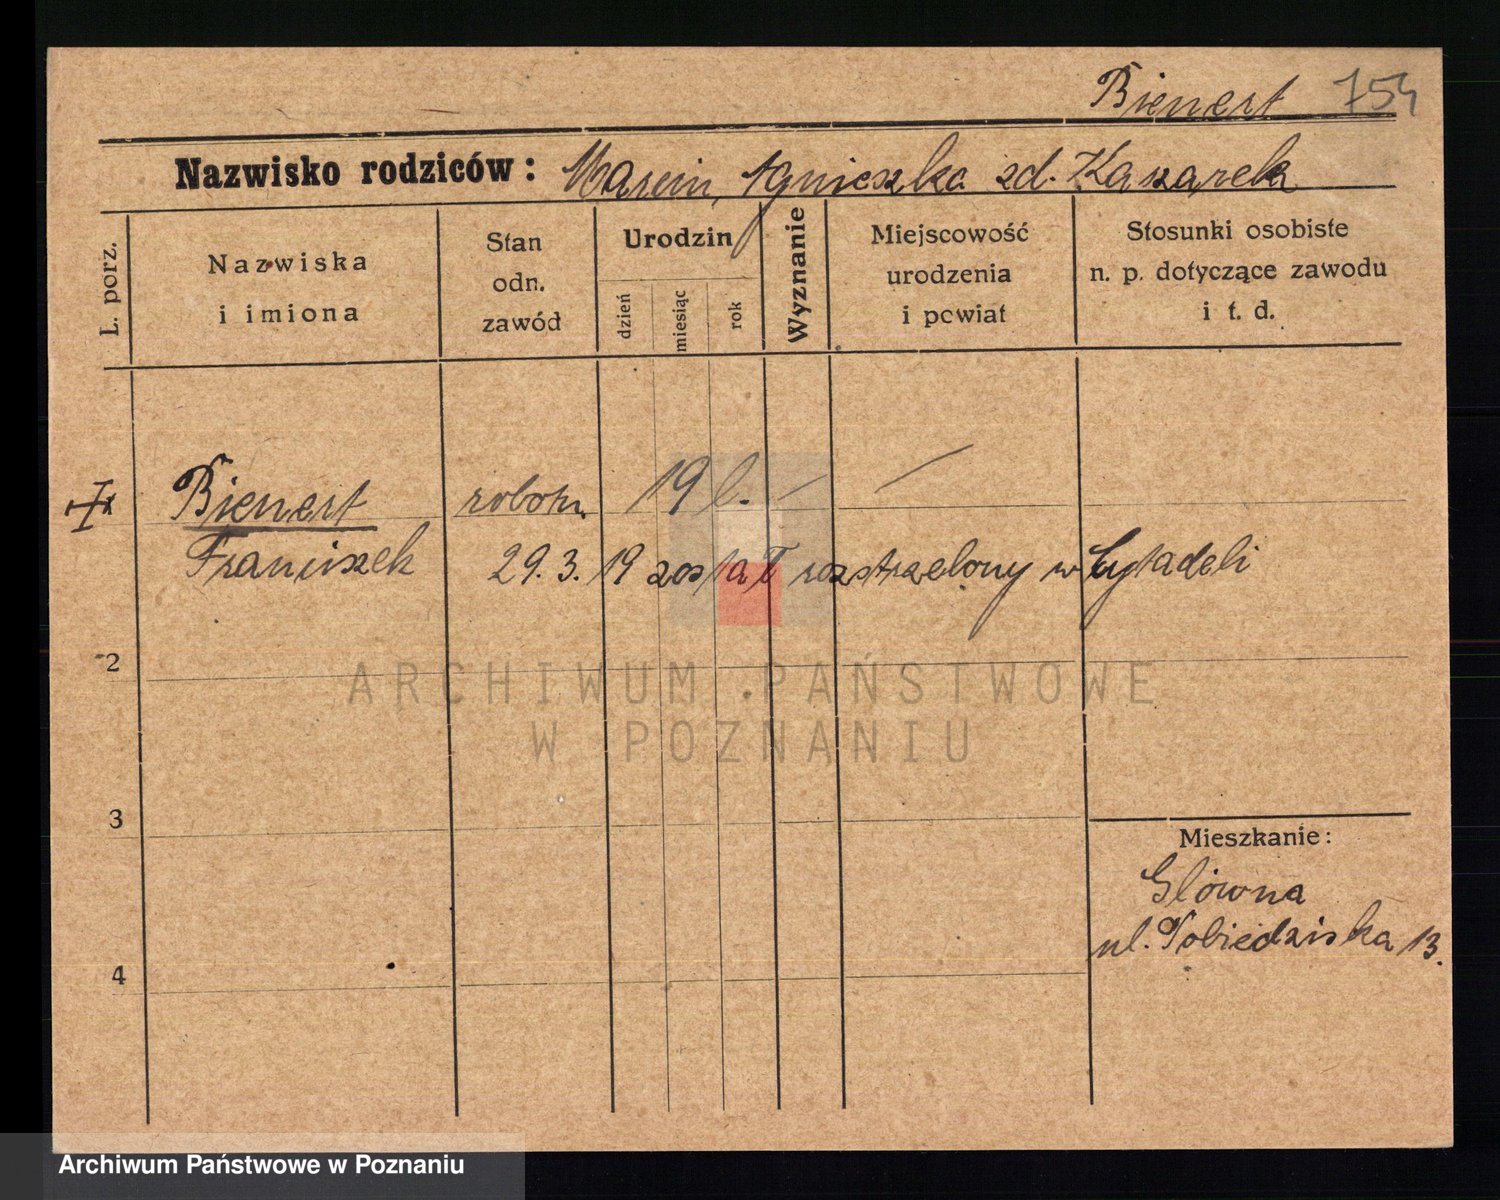 Bienert 754
Nazwisko rodziców: Marcin, Agnieszka zd. Kaszarek
L. porz.
Nazwiska
i imiona
Stan
odn.
zawód
Urodzin
dzień
miesiąc
rok
Wyznanie
Miejscowość
urodzenia
i powiat
Stosunki osobiste
n. p. dotyczące zawodu
i t. d.
Bienert robotn. 19 l. — —
Franciszek 29. 3. 19 został rozstrzelony w Cytadeli
2
ARCHIWUM PAŃSTWOWE
W POZNANIU
3
Mieszkanie:
Główna
ul. Pobiedziska 13.
4
Archiwum Państwowe w Poznaniu